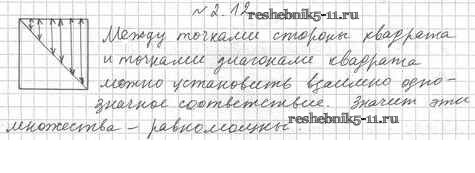 №2.12
reshebnik5-11.ru
Между точками стороны квадрата
и точками диагонали квадрата
можно установить взаимно одно-
значное соответствие. Значит эти
множества - равномощны.
reshebnik5-11.ru